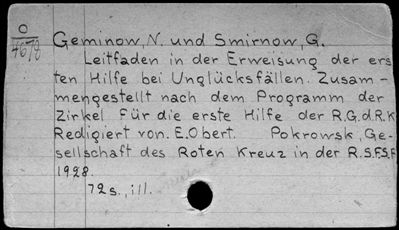 O
4678
Geminow, N. und Smirnow, G.
Leitfaden in der Erweisung der ers
ten Hilfe bei Unglücksfällen. Zusam-
mengestellt nach dem Programm der
Zirkel für die erste Hilfe der R.G.d.R.K
Redigiert von. E. Obert. Pokrowsk, Ge-
sellschaft des Roten Kreuz in der R.S.F.S.R
1928.
72 s., ill.